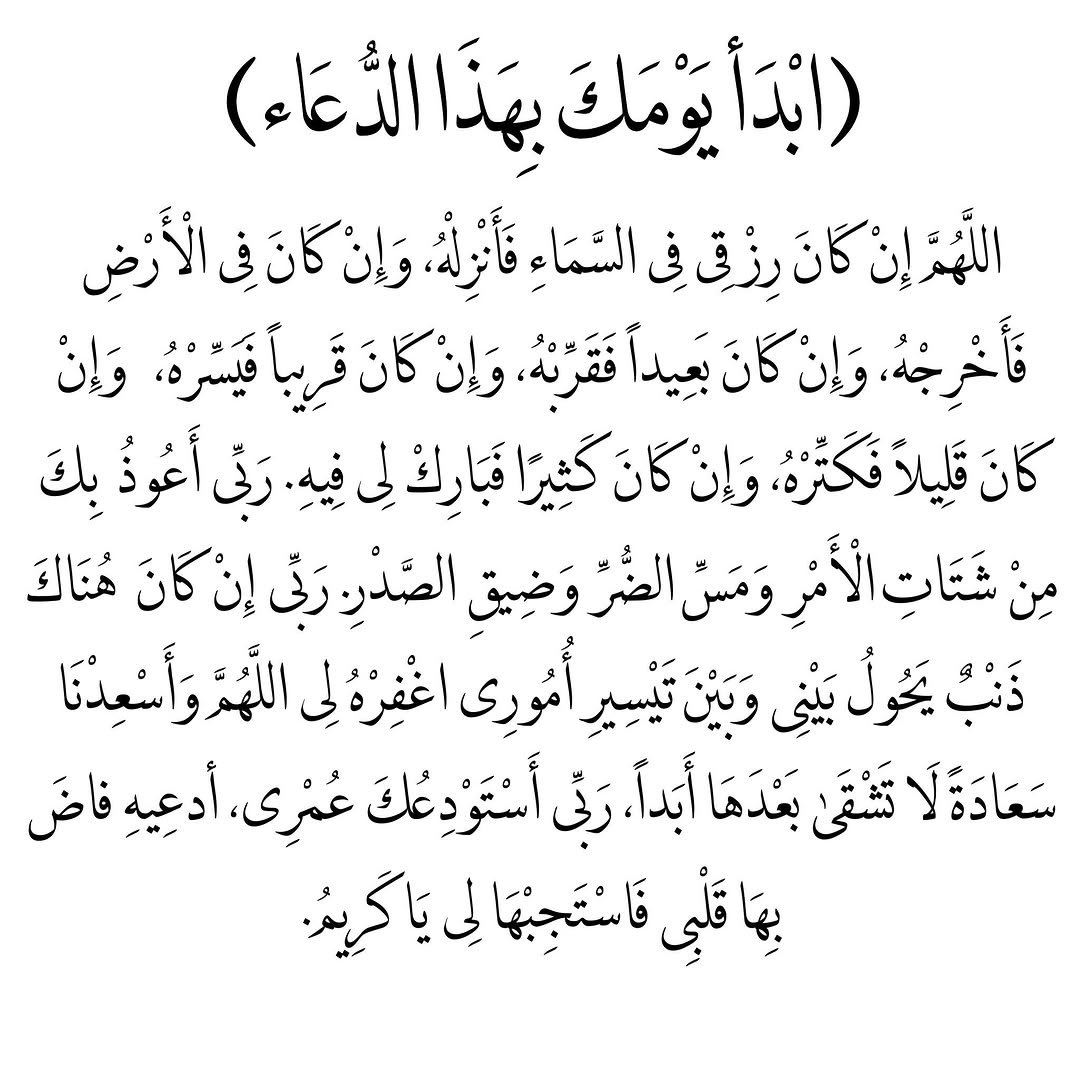 (ابْدَأ يَوْمَكَ بِهَذَا الدُّعَاء)
اللَّهُمَّ إِنْ كَانَ رِزْقِى فِى السَّمَاءِ فَأَنْزِلْهُ، وَإِنْ كَانَ فِى الْأَرْضِ
فَأَخْرِجْهُ، وَإِنْ كَانَ بَعِيداً فَقَرِّبْهُ، وَإِنْ كَانَ قَرِيباً فَيَسِّرْهُ، وَإِنْ
كَانَ قَلِيلاً فَكَثِّرْهُ، وَإِنْ كَانَ كَثِيرًا فَبَارِكْ لِى فِيهِ. رَبِّى أَعُوذُ بِكَ
مِنْ شَتَاتِ الْأَمْرِ وَمَسِّ الضُّرِّ وَضِيقِ الصَّدْرِ. رَبِّى إِنْ كَانَ هُنَاكَ
ذَنْبٌ يَحُولُ بَيْنِى وَبَيْنَ تَيْسِيرِ أُمُورِى اغْفِرْهُ لِى اللَّهُمَّ وَأَسْعِدْنَا
سَعَادَةً لَا تَشْقَىٰ بَعْدَهَا أَبَداً، رَبِّى أَسْتَوْدِعُكَ عُمْرِى، أدعِيهِ فاضَ
بِهَا قَلْبِى فَاسْتَجِبْهَا لِى يَا كَرِيمُ.